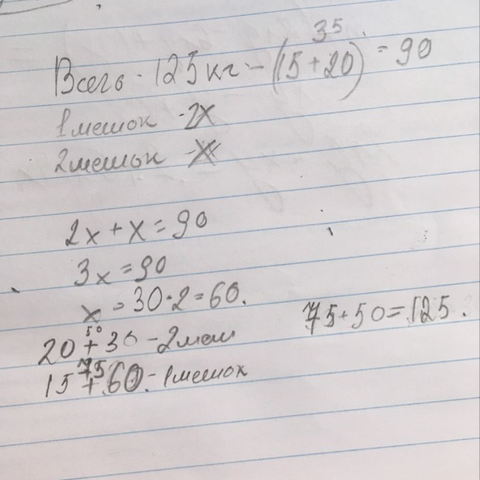 35
Всего - 125кг - (15+20) = 90
1мешок - 2x
2мешок - x
2x + x = 90
3x = 90
x = 30·2 = 60.
75 + 50 = 125.
50
20 + 30 - 2меш
75
15 + 60 - 1мешок